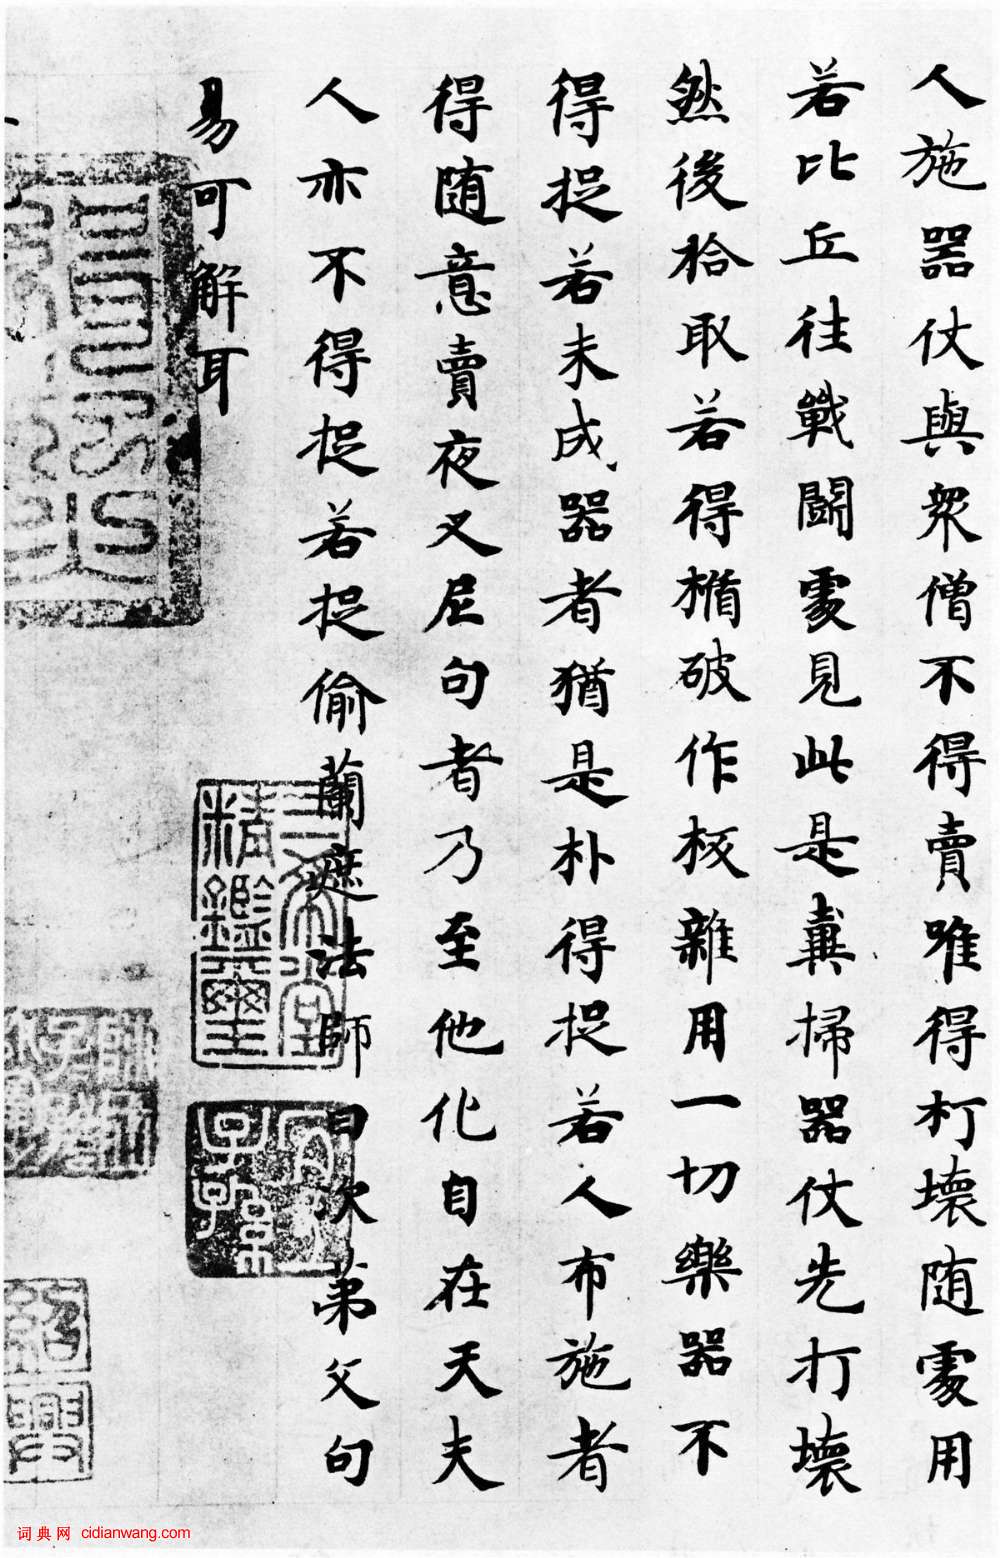 人施器仗與衆僧不得賣唯得打壞随處用
若比丘往戰鬪處見此是糞掃器仗先打壞
然後拾取若得楯破作板雜用一切樂器不
得捉若未成器者猶是朴得捉若人布施者
得随意賣夜叉尼句者乃至他化自在天夫
人亦不得捉若捉偷蘭遮法師曰次第父句
易可解耳
三希堂
精鑑璽
宜子孫
词典网 cidianwang.com